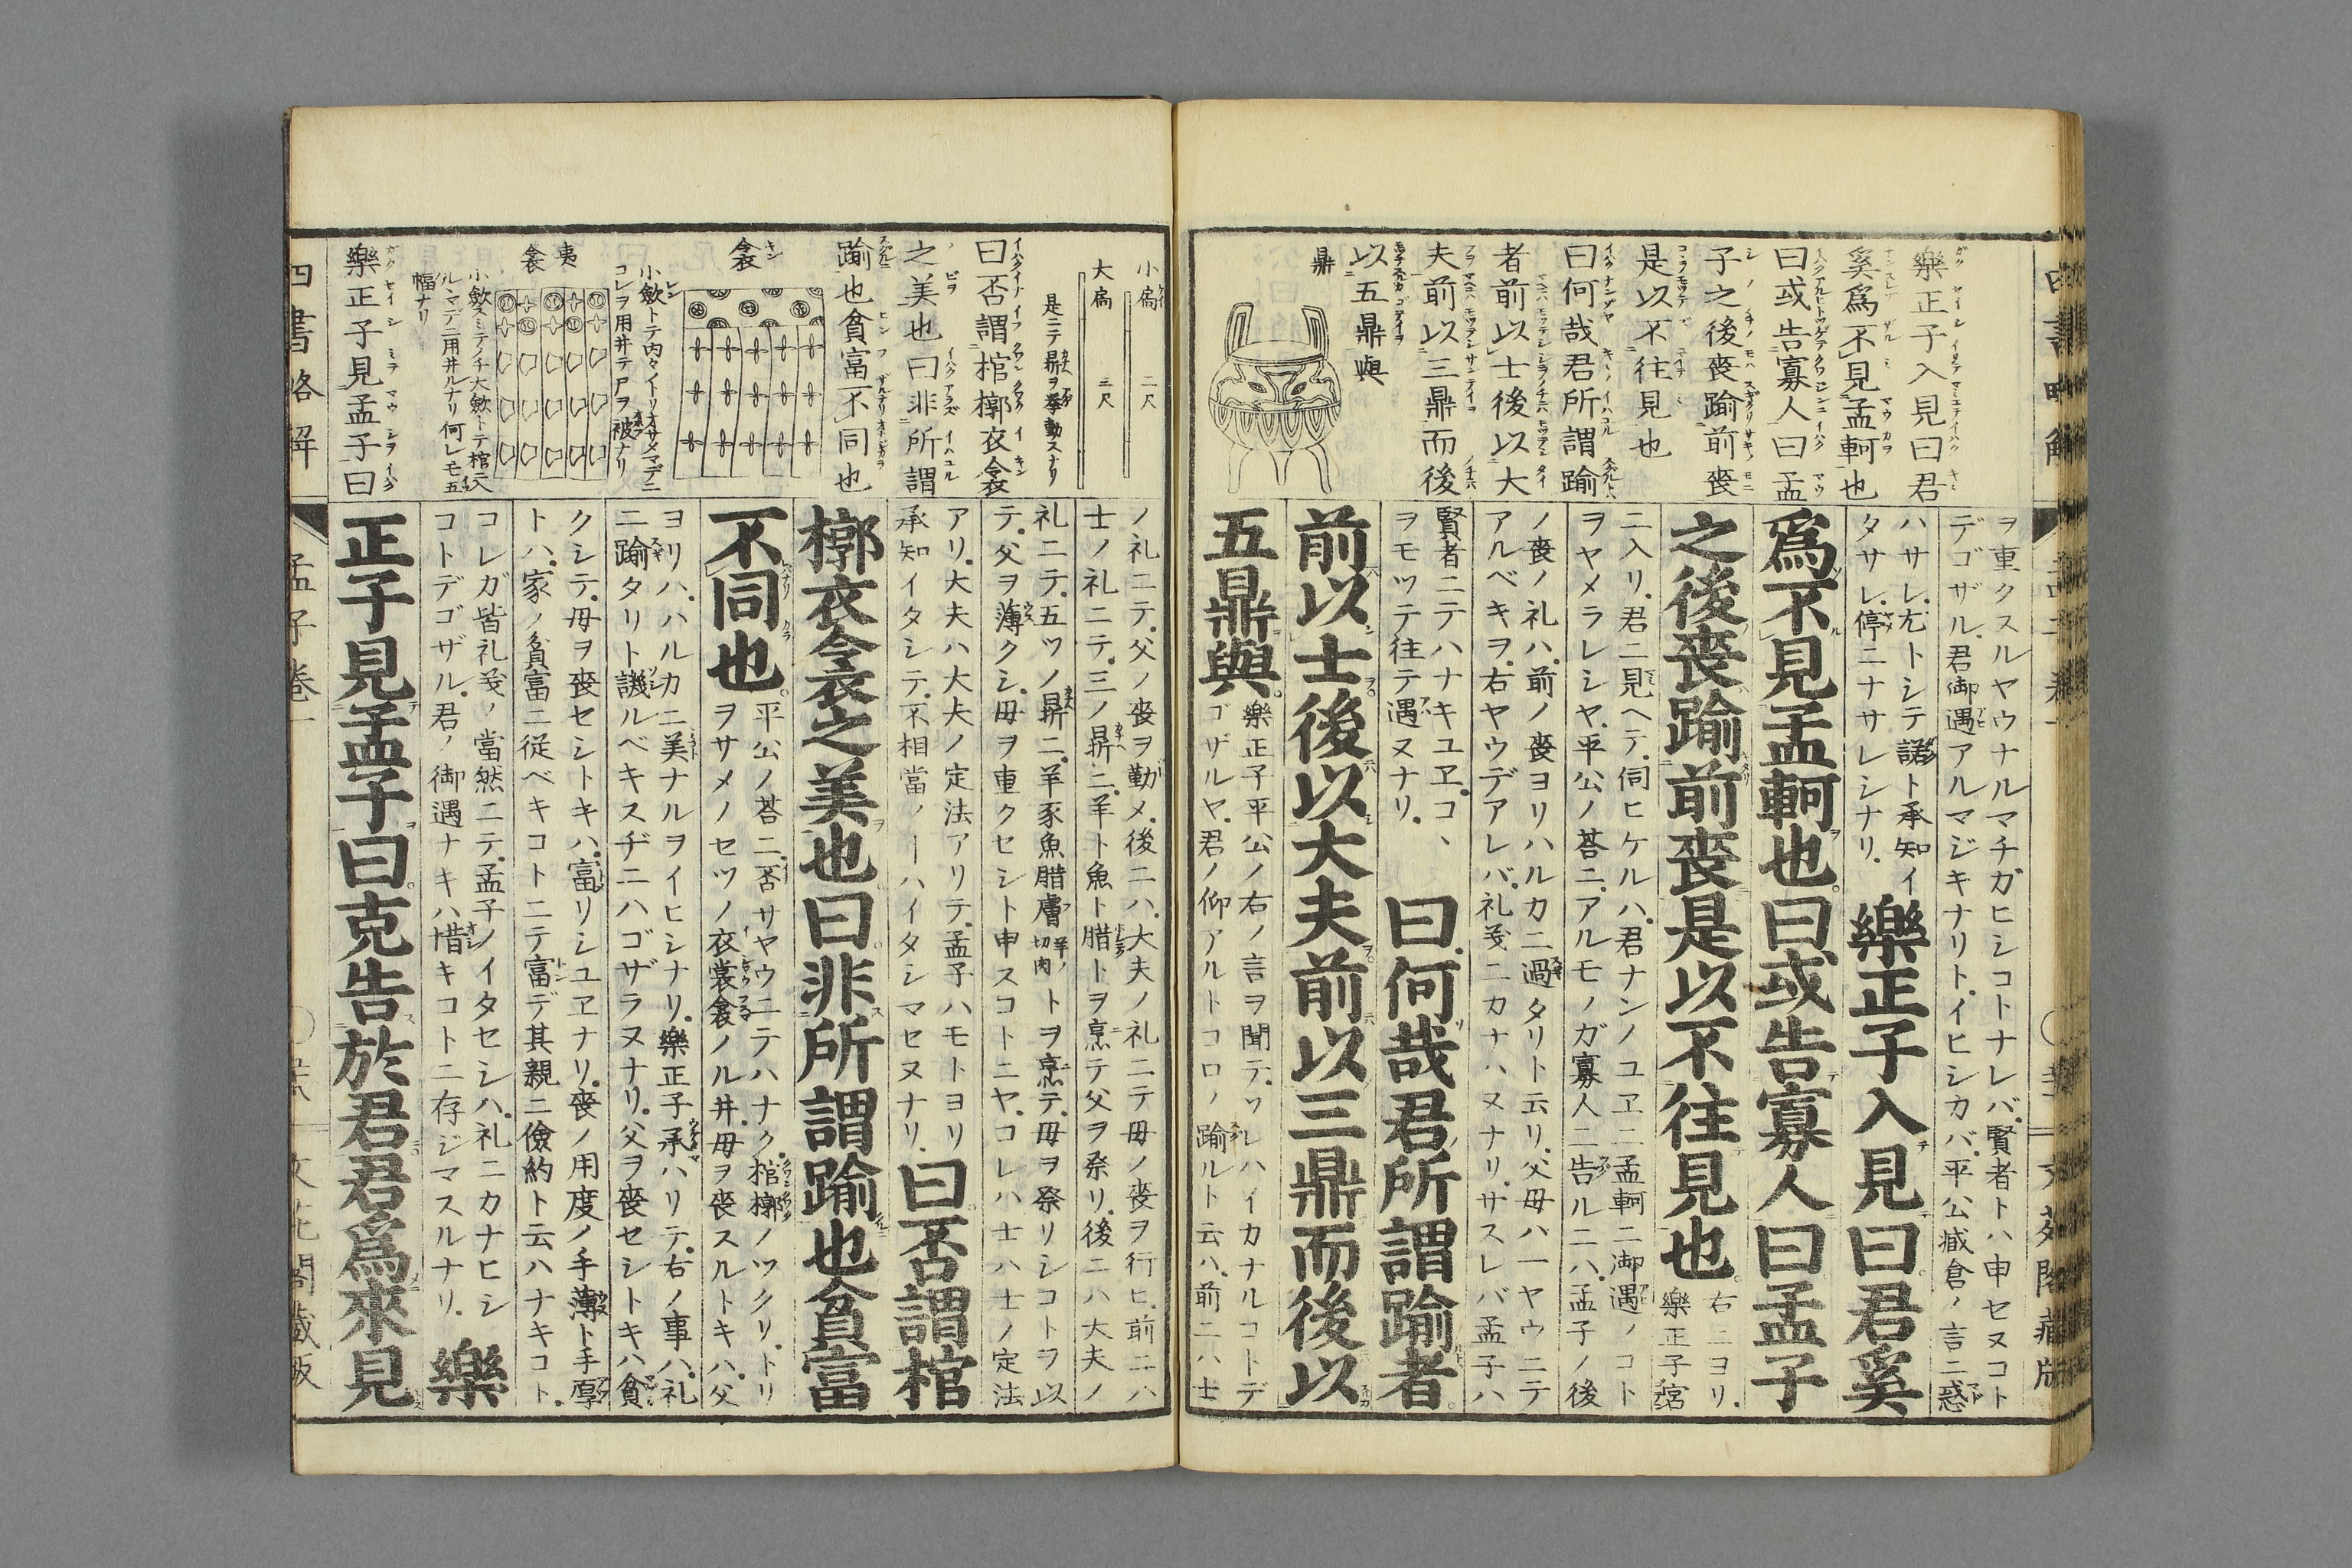 樂正子入見曰君
奚爲不見孟軻也
曰或告寡人曰孟
子之後喪踰前喪
是以不往見也
曰何哉君所謂踰
者前以士後以大
夫前以三鼎而後
以五鼎與
鼎
ヲ重クスルヤウナルマチガヒシコトナレバ賢者トハ申セヌコト
デゴザル君御遇アルマジキナリトイヒシカバ平公臧倉ノ言ニ惑
ハサレ尤トシテ諾ト承知イ
タサレ停ニナサレシナリ
樂正子入見曰君奚
爲不見孟軻也曰或告寡人曰孟子
之後喪踰前喪是以不往見也
右ニヨリ
樂正子
ニ入リ君ニ見ヘテ伺ヒケルハ君ナンノユヱニ孟軻ニ御遇ノコト
ヲヤメラレシヤ平公ノ荅ニアルモノガ寡人ニ告ルニハ孟子ノ後
ノ喪ノ礼ハ前ノ喪ヨリハルカニ過タリト云リ父母ハ一ヤウニテ
アルベキヲ右ヤウデアレバ礼義ニカナハヌナリサスレバ孟子ハ
賢者ニテハナキユヱコヽ
ヲモツテ往テ遇ヌナリ
曰何哉君所謂踰者
前以士後以大夫前以三鼎而後以
五鼎與
樂正子平公ノ右ノ言ヲ聞テソレハイカナルコトデ
ゴザルヤ君ノ仰アルトコロノ踰ルト云ハ前ニハ士
四書略解
小扃 二尺
大扃 三尺
是ニテ鼎ヲ擧動スナリ
曰否謂棺槨衣衾
之美也曰非所謂
踰也貧富不同也
衾
小斂トテ内々ノイリオサメマデニ
コレヲ用井テ尸ヲ被ナリ
夷衾
小斂スミテノチ大斂トテ棺ニ入
ルヽマデニ用井ルナリ何レモ五
幅ナリ
樂正子見孟子曰
ノ礼ニテ父ノ喪ヲ勤メ後ニハ大夫ノ礼ニテ母ノ喪ヲ行ヒ前ニハ
士ノ礼ニテ三ノ鼎ニ羊ト魚ト腊トヲ烹テ父ヲ祭リ後ニハ大夫ノ
礼ニテ五ツノ鼎ニ羊豕魚腊膚羊ノ切肉トヲ烹テ母ヲ祭リシコトヲ以
テ父ヲ薄クシ母ヲ重クセシト申スコトニヤコレハ士ハ士ノ定法
アリ大夫ハ大夫ノ定法アリテ孟子ハモトヨリ
承知イタシテ不相當ノーハイタシマセヌナリ
曰否謂棺
槨衣衾之美也曰非所謂踰也貧富
不同也
平公ノ荅ニ否サヤウニテハナク棺槨ノツクリトリ
ヲサメノセツノ衣裳衾ノル井母ヲ喪スルトキハ父
ヨリハハルカニ美ナルヲイヒシナリ樂正子承ハリテ右ノ事ハ礼
ニ踰タリト譏ルベキスヂニハゴザラヌナリ父ヲ喪セシトキハ貧
クシテ母ヲ喪セシトキハ富リシユヱナリ喪ノ用度ノ手薄ト手厚
トハ家ノ貧富ニ從ベキコトニテ富デ其親ニ儉約ト云ハナキコト
コレガ皆礼義ノ當然ニテ孟子ノイタセシハ礼ニカナヒシ
コトデゴザル君ノ御遇ナキハ惜キコトニ存ジマスルナリ
樂
正子見孟子曰克告於君君爲來見
孟子卷一
文苑閣藏版